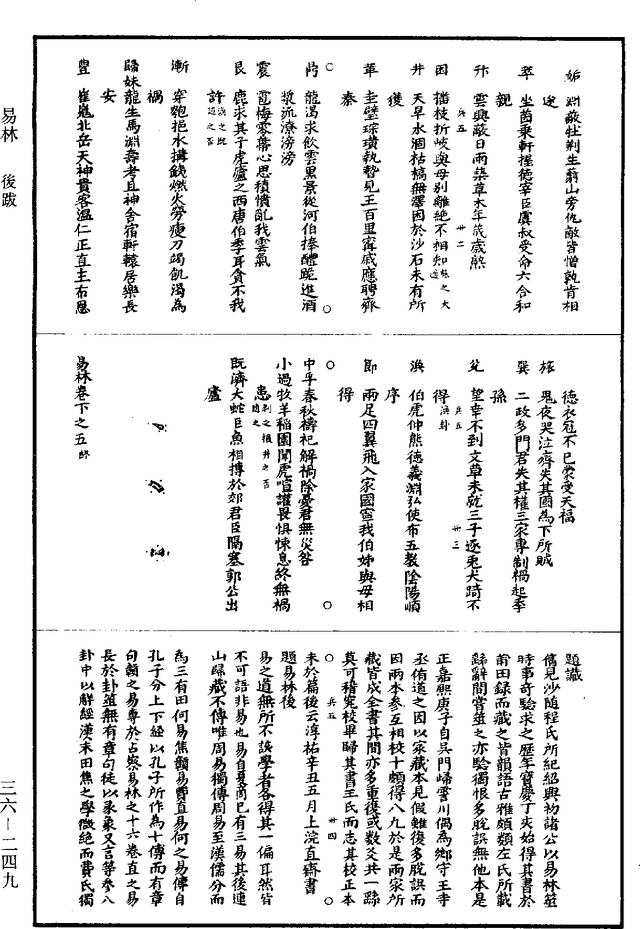 易林 後跋
三六—二四九
姤 淵敵牡荆生蕍山旁仇敵皆憎孰肯相
逡
萃 坐茵乘軒握德宰臣虞叔受命六合和
親
升 雲興蔽日雨集草木年茂歲熟
困 播枝折岐與母別離絶不相知
井 天旱水涸枯槁無澤困於沙石未有所
後
革 圭璧琮璜執贄見王百里甯戚應聘齊
秦
龍渴求飲雲黑景從河伯捧醴跪進酒
漿流潦滂滂
震 雹梅零蔕心思積憒亂我雲氣
艮 鹿求其子虎廬之西唐伯季耳貪不我
許
漸 穿匏挹水搆錢燃火勞瘦刀竭飢渴為
禍
歸妹龍生馬淵壽考且神舍宿軒轅居樂長
安
豐 崔嵬北岳天神貴客溫仁正直主布恩
德衣冠不已蒙受天福
旅 鬼夜哭泣齊失其國為下所賊
巽 二政多門君失其權三家專制禍起季
孫
兌 望幸不到文章未就三子逐兎犬踦不
得
渙 伯虎仲熊德義淵弘使布五教陰陽順
序
節 兩足四翼飛入家國寧我伯姊與母相
得
中孚春秋禱祀解禍除憂君無災咎
小過牧羊稻園聞虎喧讙畏懼悚息終無禍
患
既濟大蛇巨魚相搏於郊君臣隔塞郭公出
廬
易林卷下之五終
題識
舊見沙隨程氏所紀紹興初諸公以易林筮
時事奇驗求之歷年寶慶丁亥始得其書於
莆田録而藏之皆韻語古雅頗類左氏所載
繇辭間嘗筮之亦驗獨恨多脫誤無他本是
正嘉熙庚子自吳門歸霅川偶為鄉守王寺
丞侑道之因以家藏本見假雖復多脫誤而
因兩本參互相校十頗得八九於是兩家所
藏皆成全書其間亦多重復或數爻共一繇
莫可稽究校畢歸其書王氏而志其校正本
末於篇後云淳祐辛丑五月上浣直齋書
題易林後
易之道無所不該學者各得其一偏耳然皆
不可語非易也易自夏商已有三易其後連
山歸藏不傳唯周易獨傳周易至漢儒分而
為三有田何易焦贛易費直易何之易傳自
孔子分上下經以孔子所作為十傳而有章
句贛之易專於占察易林之十六卷直之易
長於卦筮無有章句徒以彖象文言等參入
卦中以解經漢末田焦之學微絶而費氏獨